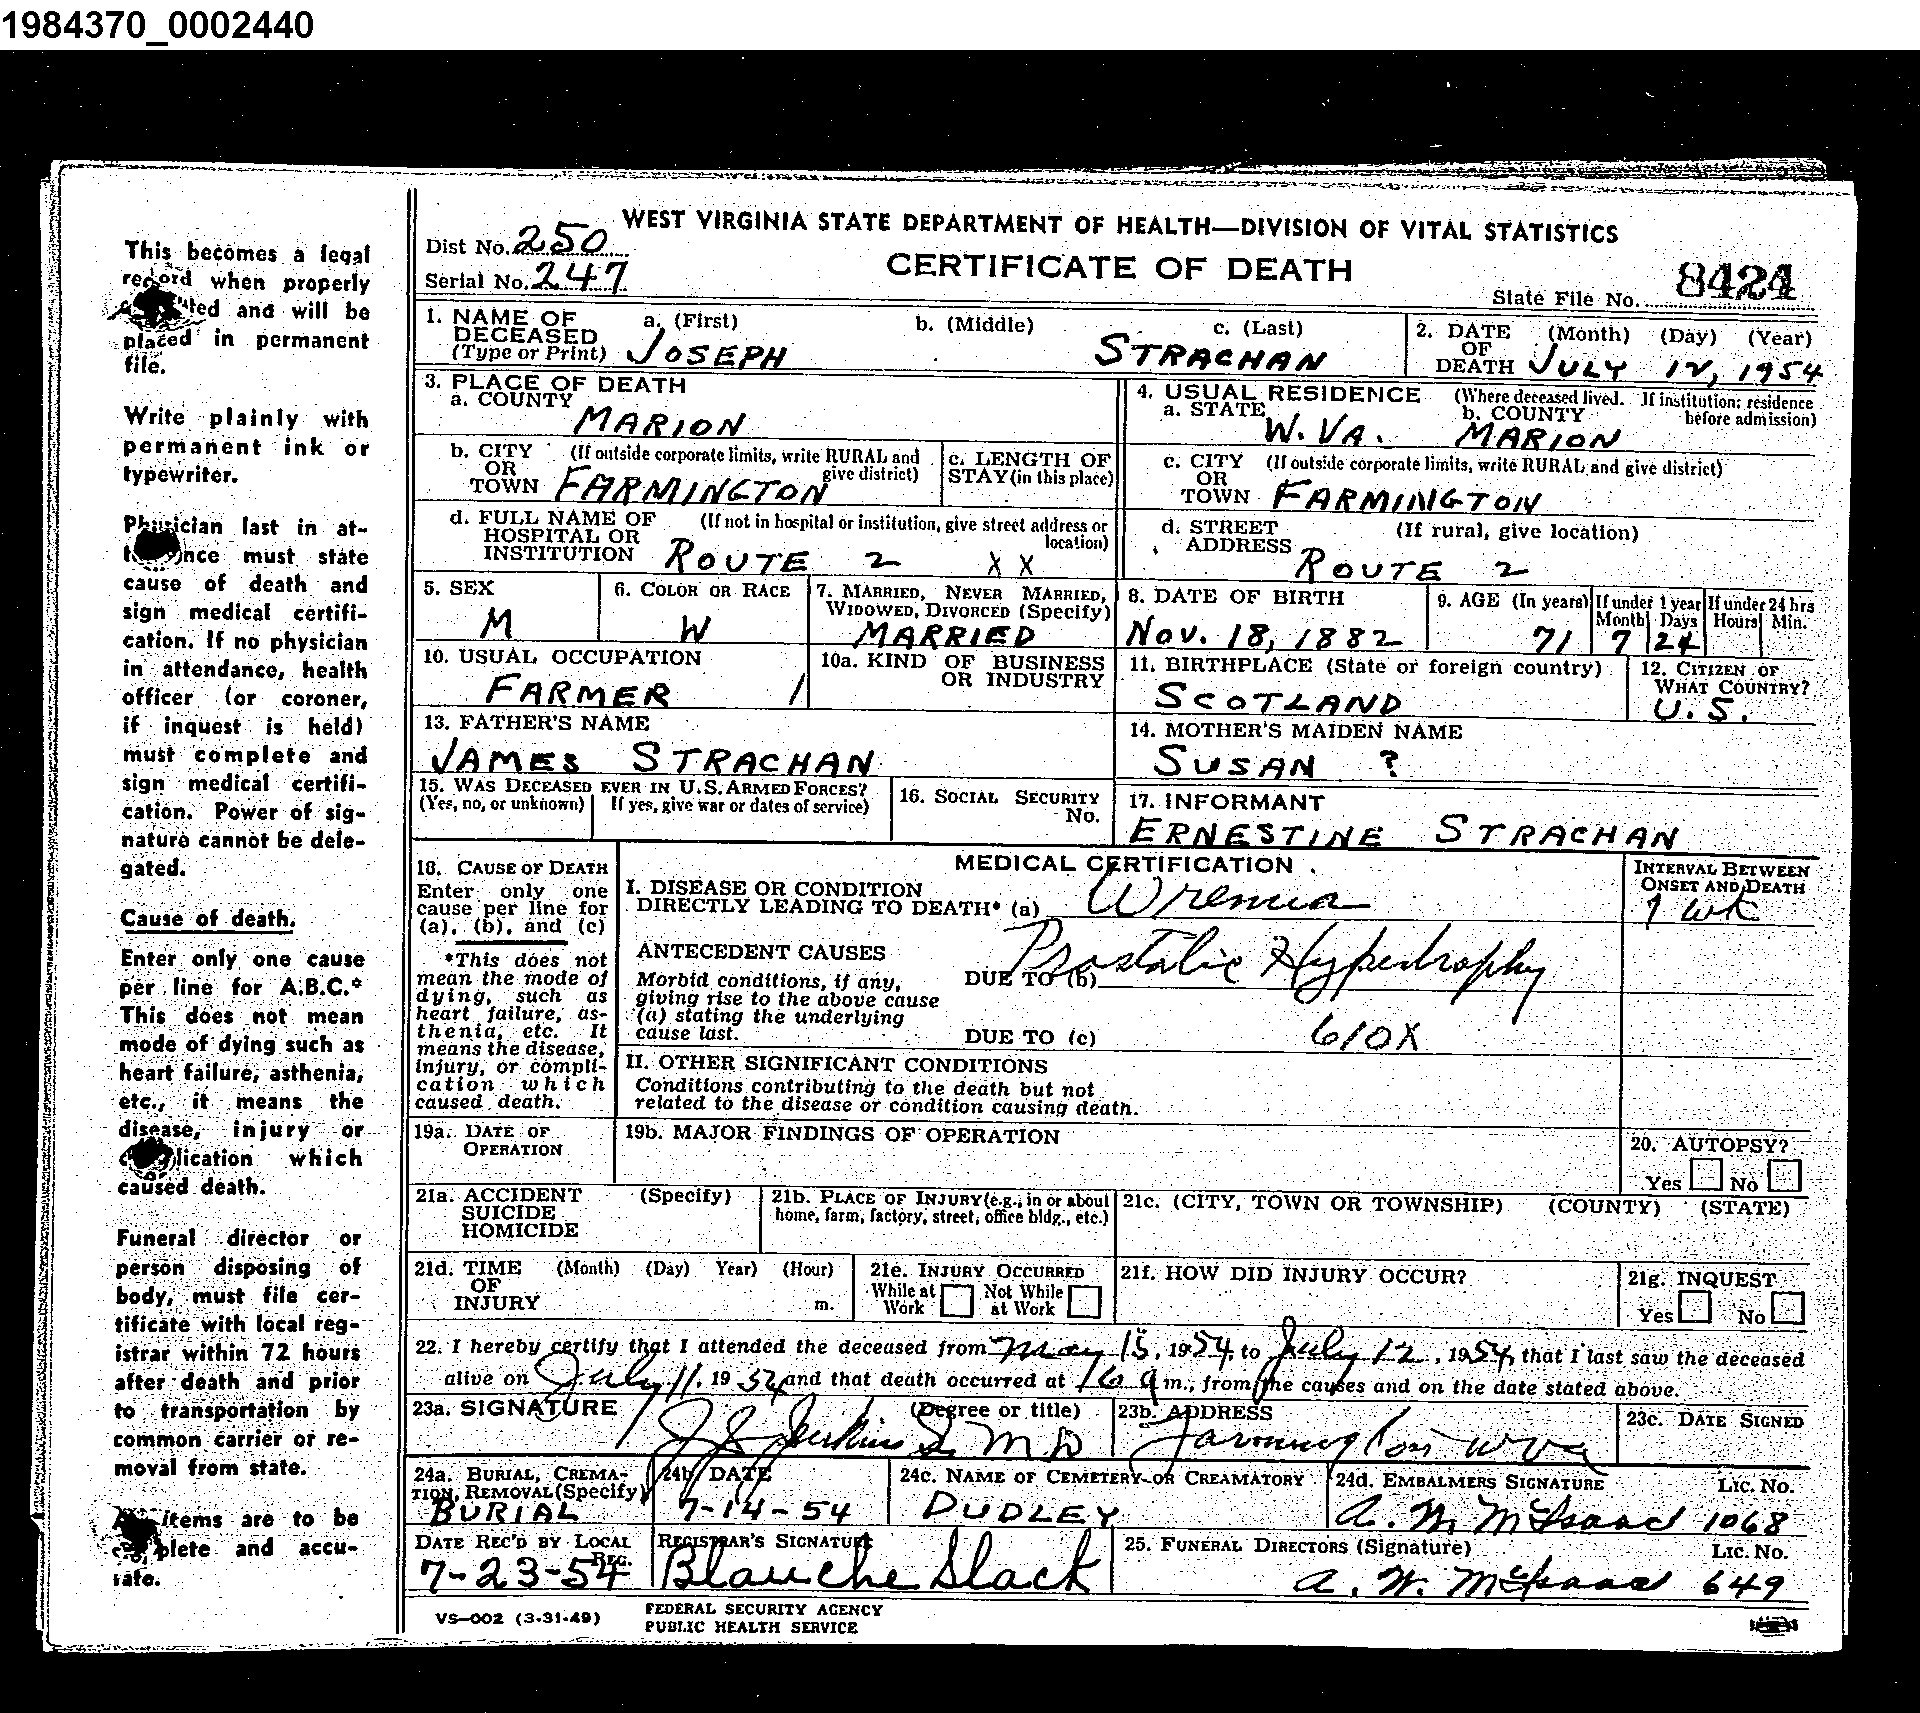 1984370_0002440
This becomes a legal
record when properly
and will be
placed in permanent
file.
Write plainly with
permanent ink or
typewriter.
Physician last in at-
must state
cause of death and
sign medical certifi-
cation. If no physician
in attendance, health
officer (or coroner,
if inquest is held)
must complete and
sign medical certifi-
cation. Power of sig-
nature cannot be dele-
gated.
Cause of death.
Enter only one cause
per line for A.B.C.*
This does not mean
mode of dying such as
heart failure, asthenia,
etc., it means the
disease, injury or
which
caused death.
Funeral director or
person disposing of
body, must file cer-
tificate with local reg-
istrar within 72 hours
after death and prior
to transportation by
common carrier or re-
moval from state.
items are to be
and accu-
rate.
WEST VIRGINIA STATE DEPARTMENT OF HEALTH—DIVISION OF VITAL STATISTICS
Dist No. 250
Serial No. 247
CERTIFICATE OF DEATH
State File No. 8424
1. NAME OF DECEASED (Type or Print) a. (First) b. (Middle) c. (Last)
JOSEPH STRACHAN
2. DATE OF DEATH (Month) (Day) (Year)
JULY 12, 1954
3. PLACE OF DEATH
a. COUNTY MARION
4. USUAL RESIDENCE (Where deceased lived. If institution: residence before admission)
a. STATE W. VA. b. COUNTY MARION
b. CITY OR TOWN (If outside corporate limits, write RURAL and give district) FARMINGTON
c. LENGTH OF STAY (in this place)
c. CITY OR TOWN (If outside corporate limits, write RURAL and give district) FARMINGTON
d. FULL NAME OF HOSPITAL OR INSTITUTION (If not in hospital or institution, give street address or location) ROUTE 2 XX
d. STREET ADDRESS (If rural, give location) ROUTE 2
5. SEX M
6. COLOR OR RACE W
7. MARRIED, NEVER MARRIED, WIDOWED, DIVORCED (Specify) MARRIED
8. DATE OF BIRTH NOV. 18, 1882
9. AGE (In years) 71 If under 1 year Month 7 Days 24 If under 24 hrs Hours Min.
10. USUAL OCCUPATION FARMER /
10a. KIND OF BUSINESS OR INDUSTRY
11. BIRTHPLACE (State or foreign country) SCOTLAND
12. CITIZEN OF WHAT COUNTRY? U.S.
13. FATHER'S NAME
JAMES STRACHAN
14. MOTHER'S MAIDEN NAME
SUSAN ?
15. WAS DECEASED EVER IN U.S. ARMED FORCES?
(Yes, no, or unknown) If yes, give war or dates of service)
16. SOCIAL SECURITY No.
17. INFORMANT
ERNESTINE STRACHAN
18. CAUSE OF DEATH
Enter only one
cause per line for
(a), (b), and (c)
*This does not
mean the mode of
dying, such as
heart failure, as-
thenia, etc. It
means the disease,
injury, or compli-
cation which
caused death.
MEDICAL CERTIFICATION
I. DISEASE OR CONDITION
DIRECTLY LEADING TO DEATH* (a) Uremia
INTERVAL BETWEEN ONSET AND DEATH
1 wk
ANTECEDENT CAUSES
Morbid conditions, if any,
giving rise to the above cause
(a) stating the underlying
cause last.
DUE TO (b) Prostatic Hypertrophy
DUE TO (c) 610X
II. OTHER SIGNIFICANT CONDITIONS
Conditions contributing to the death but not
related to the disease or condition causing death.
19a. DATE OF OPERATION
19b. MAJOR FINDINGS OF OPERATION
20. AUTOPSY?
Yes No
21a. ACCIDENT SUICIDE HOMICIDE (Specify)
21b. PLACE OF INJURY (e.g., in or about home, farm, factory, street, office bldg., etc.)
21c. (CITY, TOWN OR TOWNSHIP) (COUNTY) (STATE)
21d. TIME OF INJURY (Month) (Day) Year) (Hour) m.
21e. INJURY OCCURRED
While at Work Not While at Work
21f. HOW DID INJURY OCCUR?
21g. INQUEST
Yes No
22. I hereby certify that I attended the deceased from May 15, 1954, to July 12, 1954, that I last saw the deceased
alive on July 11, 1954 and that death occurred at m., from the causes and on the date stated above.
23a. SIGNATURE (Degree or title)
Jenkins MD
23b. ADDRESS
Farmington W Va
23c. DATE SIGNED
24a. BURIAL, CREMATION, REMOVAL (Specify) BURIAL
24b. DATE 7-14-54
24c. NAME OF CEMETERY OR CREAMATORY
DUDLEY
24d. EMBALMERS SIGNATURE LIC. NO.
A. W. McIsaac 1068
DATE REC'D BY LOCAL REG.
7-23-54
REGISTRAR'S SIGNATURE
Blanche Slack
25. FUNERAL DIRECTORS (Signature) LIC. NO.
A. W. McIsaac 649
VS—002 (3-31-49)
FEDERAL SECURITY AGENCY
PUBLIC HEALTH SERVICE